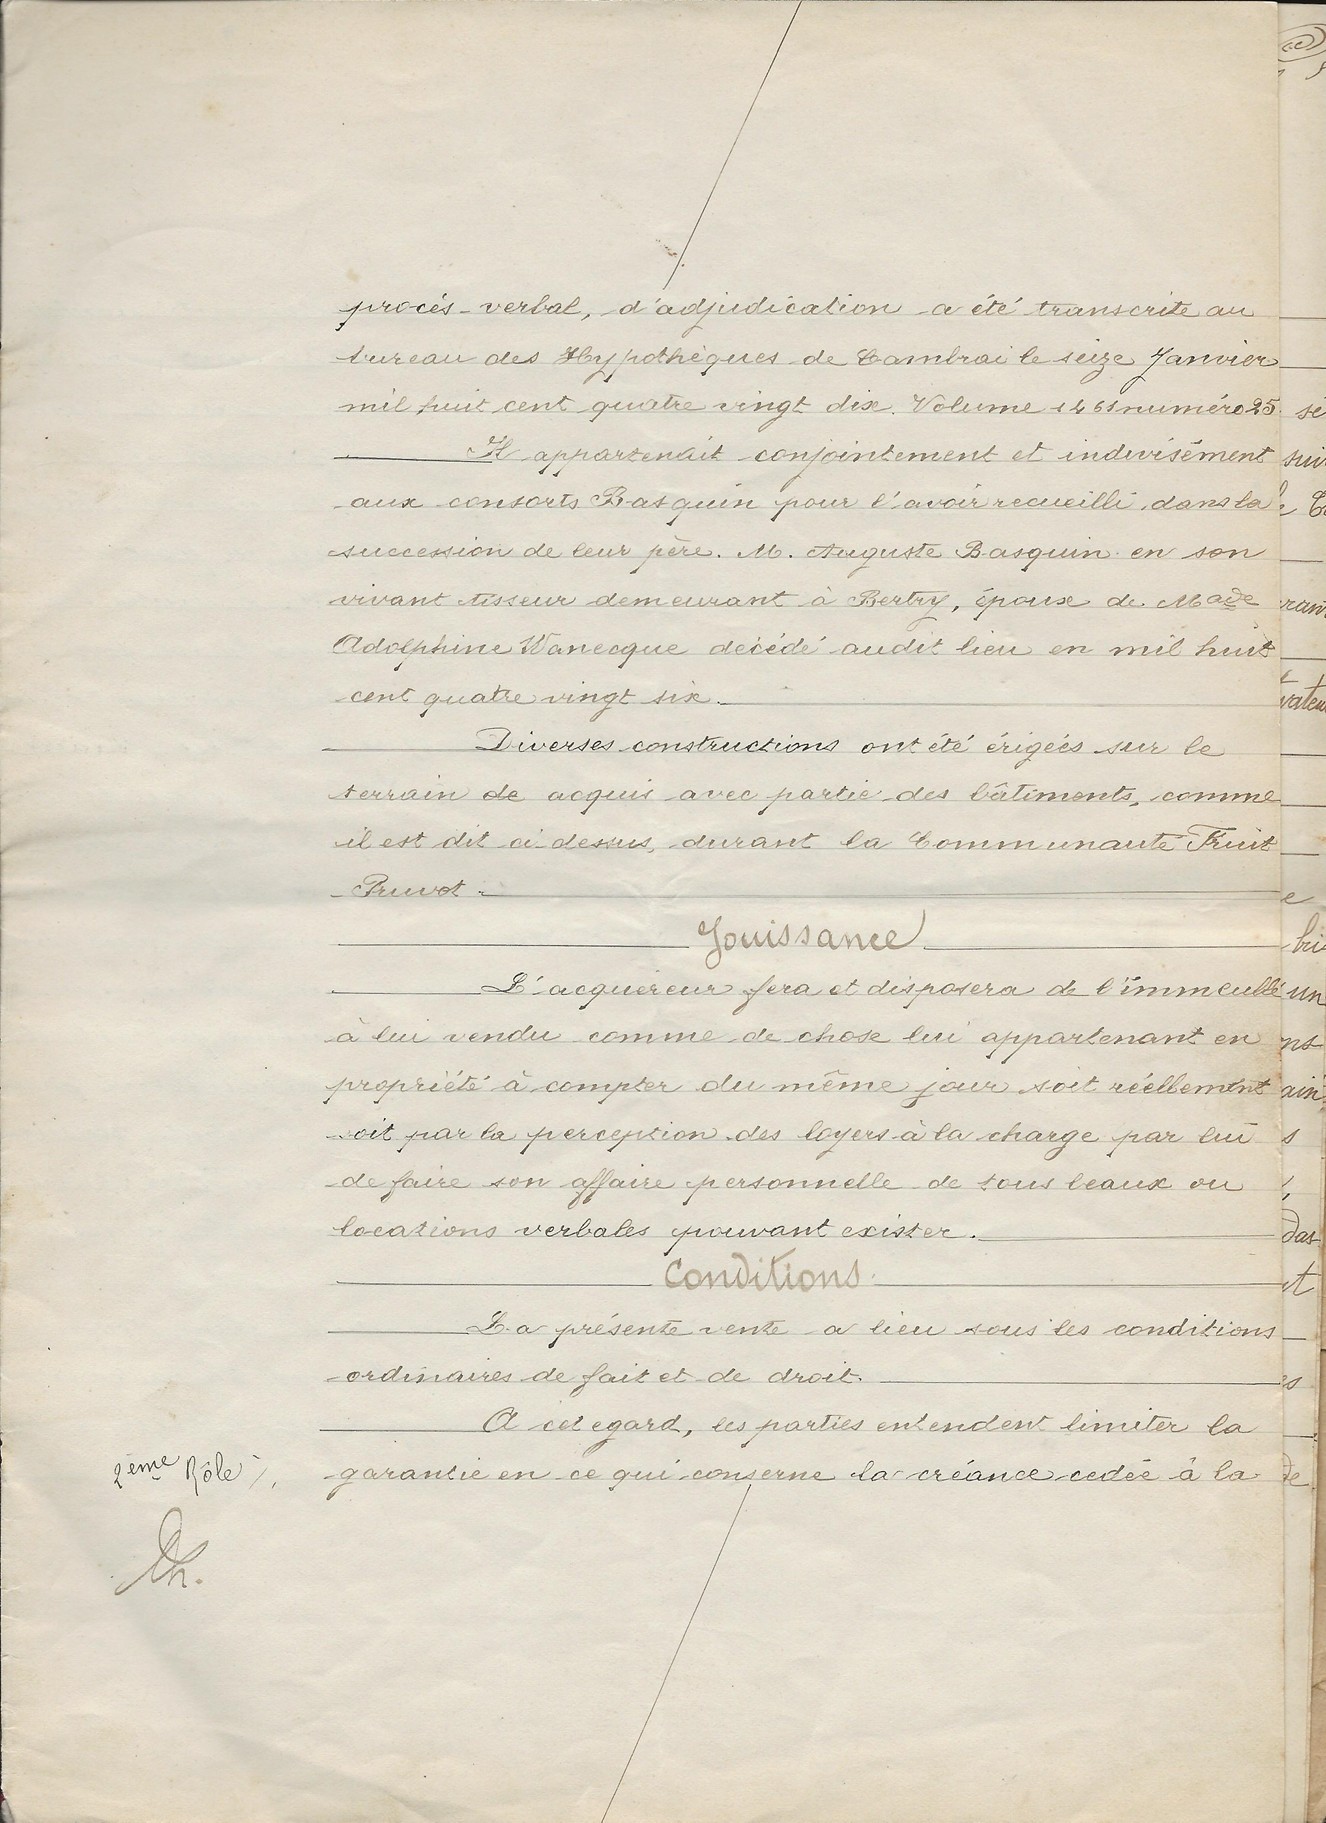 procès-verbal, d'adjudication a été transcrite au
bureau des Hypothèques de Cambrai le seize Janvier
mil huit cent quatre vingt dix. Volume 1461 numéro 25
Il appartenait conjointement et indivisément
aux consorts Basquin pour l'avoir recueilli dans la
succession de leur père. M. Auguste Basquin en son
vivant tisseur demeurant à Bertry, époux de Made
Adolphine Wanecque décédé audit lieu en mil huit
cent quatre vingt six.
Diverses constructions ont été érigées sur le
terrain de acquis avec partie des bâtiments, comme
il est dit ci-dessus, durant la Communauté Fruit
Pruvot.
Jouissance
L'acquéreur fera et disposera de l'immeuble
à lui vendu comme de chose lui appartenant en
propriété à compter du même jour soit réellement
soit par la perception des loyers à la charge par lui
de faire son affaire personnelle de tous beaux ou
locations verbales pouvant exister.
Conditions
La présente vente a lieu sous les conditions
ordinaires de fait et de droit.
A cet egard, les parties entendent limiter la
2ème Rôle garantie en ce qui conserne la créance cedée à la